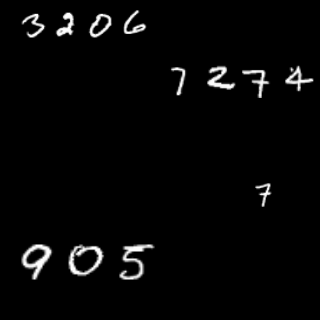 3206
7274
7
905